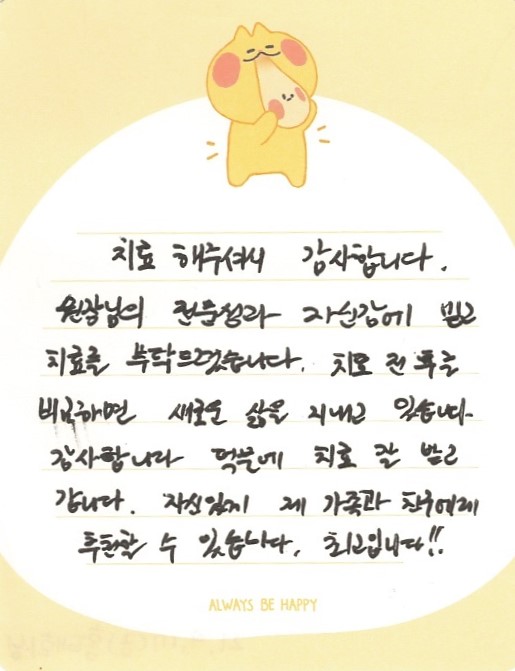 치료 해주셔서 감사합니다.
원장님의 전문성과 자신감에 믿고
치료를 부탁드렸습니다. 치료 전 후를
비교하면 새로운 삶을 지내고 있습니다.
감사합니다 덕분에 치료 잘 받고
갑니다. 자신있게 제 가족과 친구에게
추천할 수 있습니다. 최고입니다!!
ALWAYS BE HAPPY